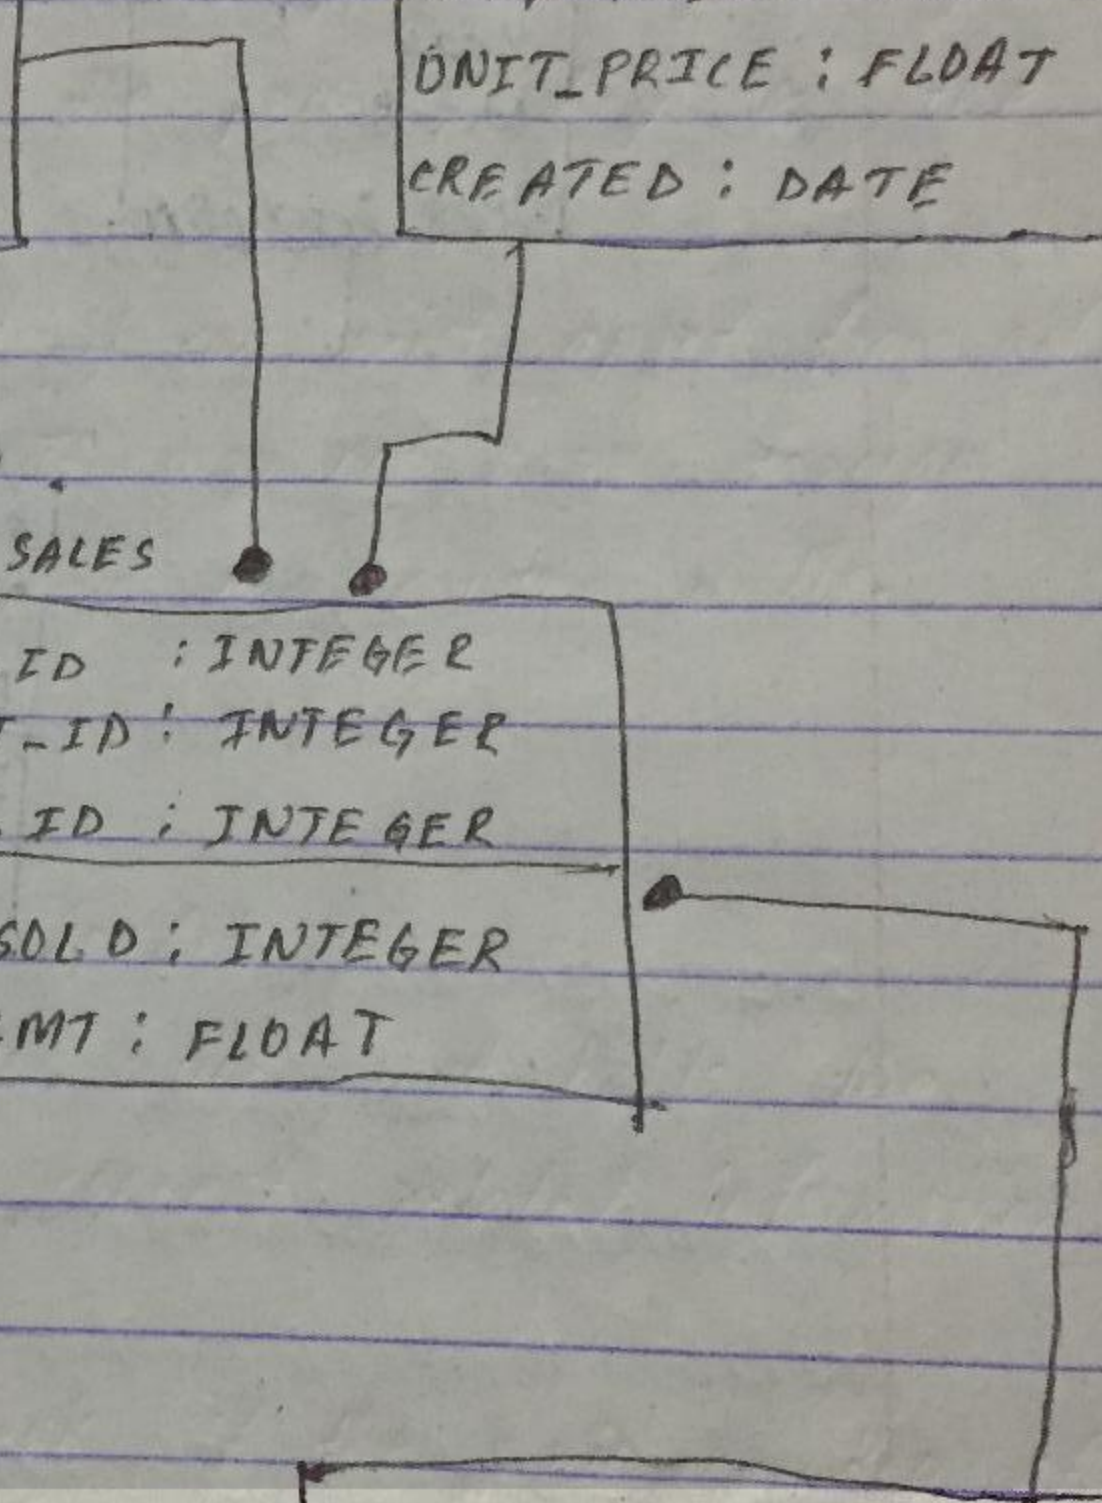 UNIT_PRICE : FLOAT
CREATED : DATE
SALES
ID : INTEGER
T_ID : INTEGER
ID : INTEGER
SOLD : INTEGER
MT : FLOAT